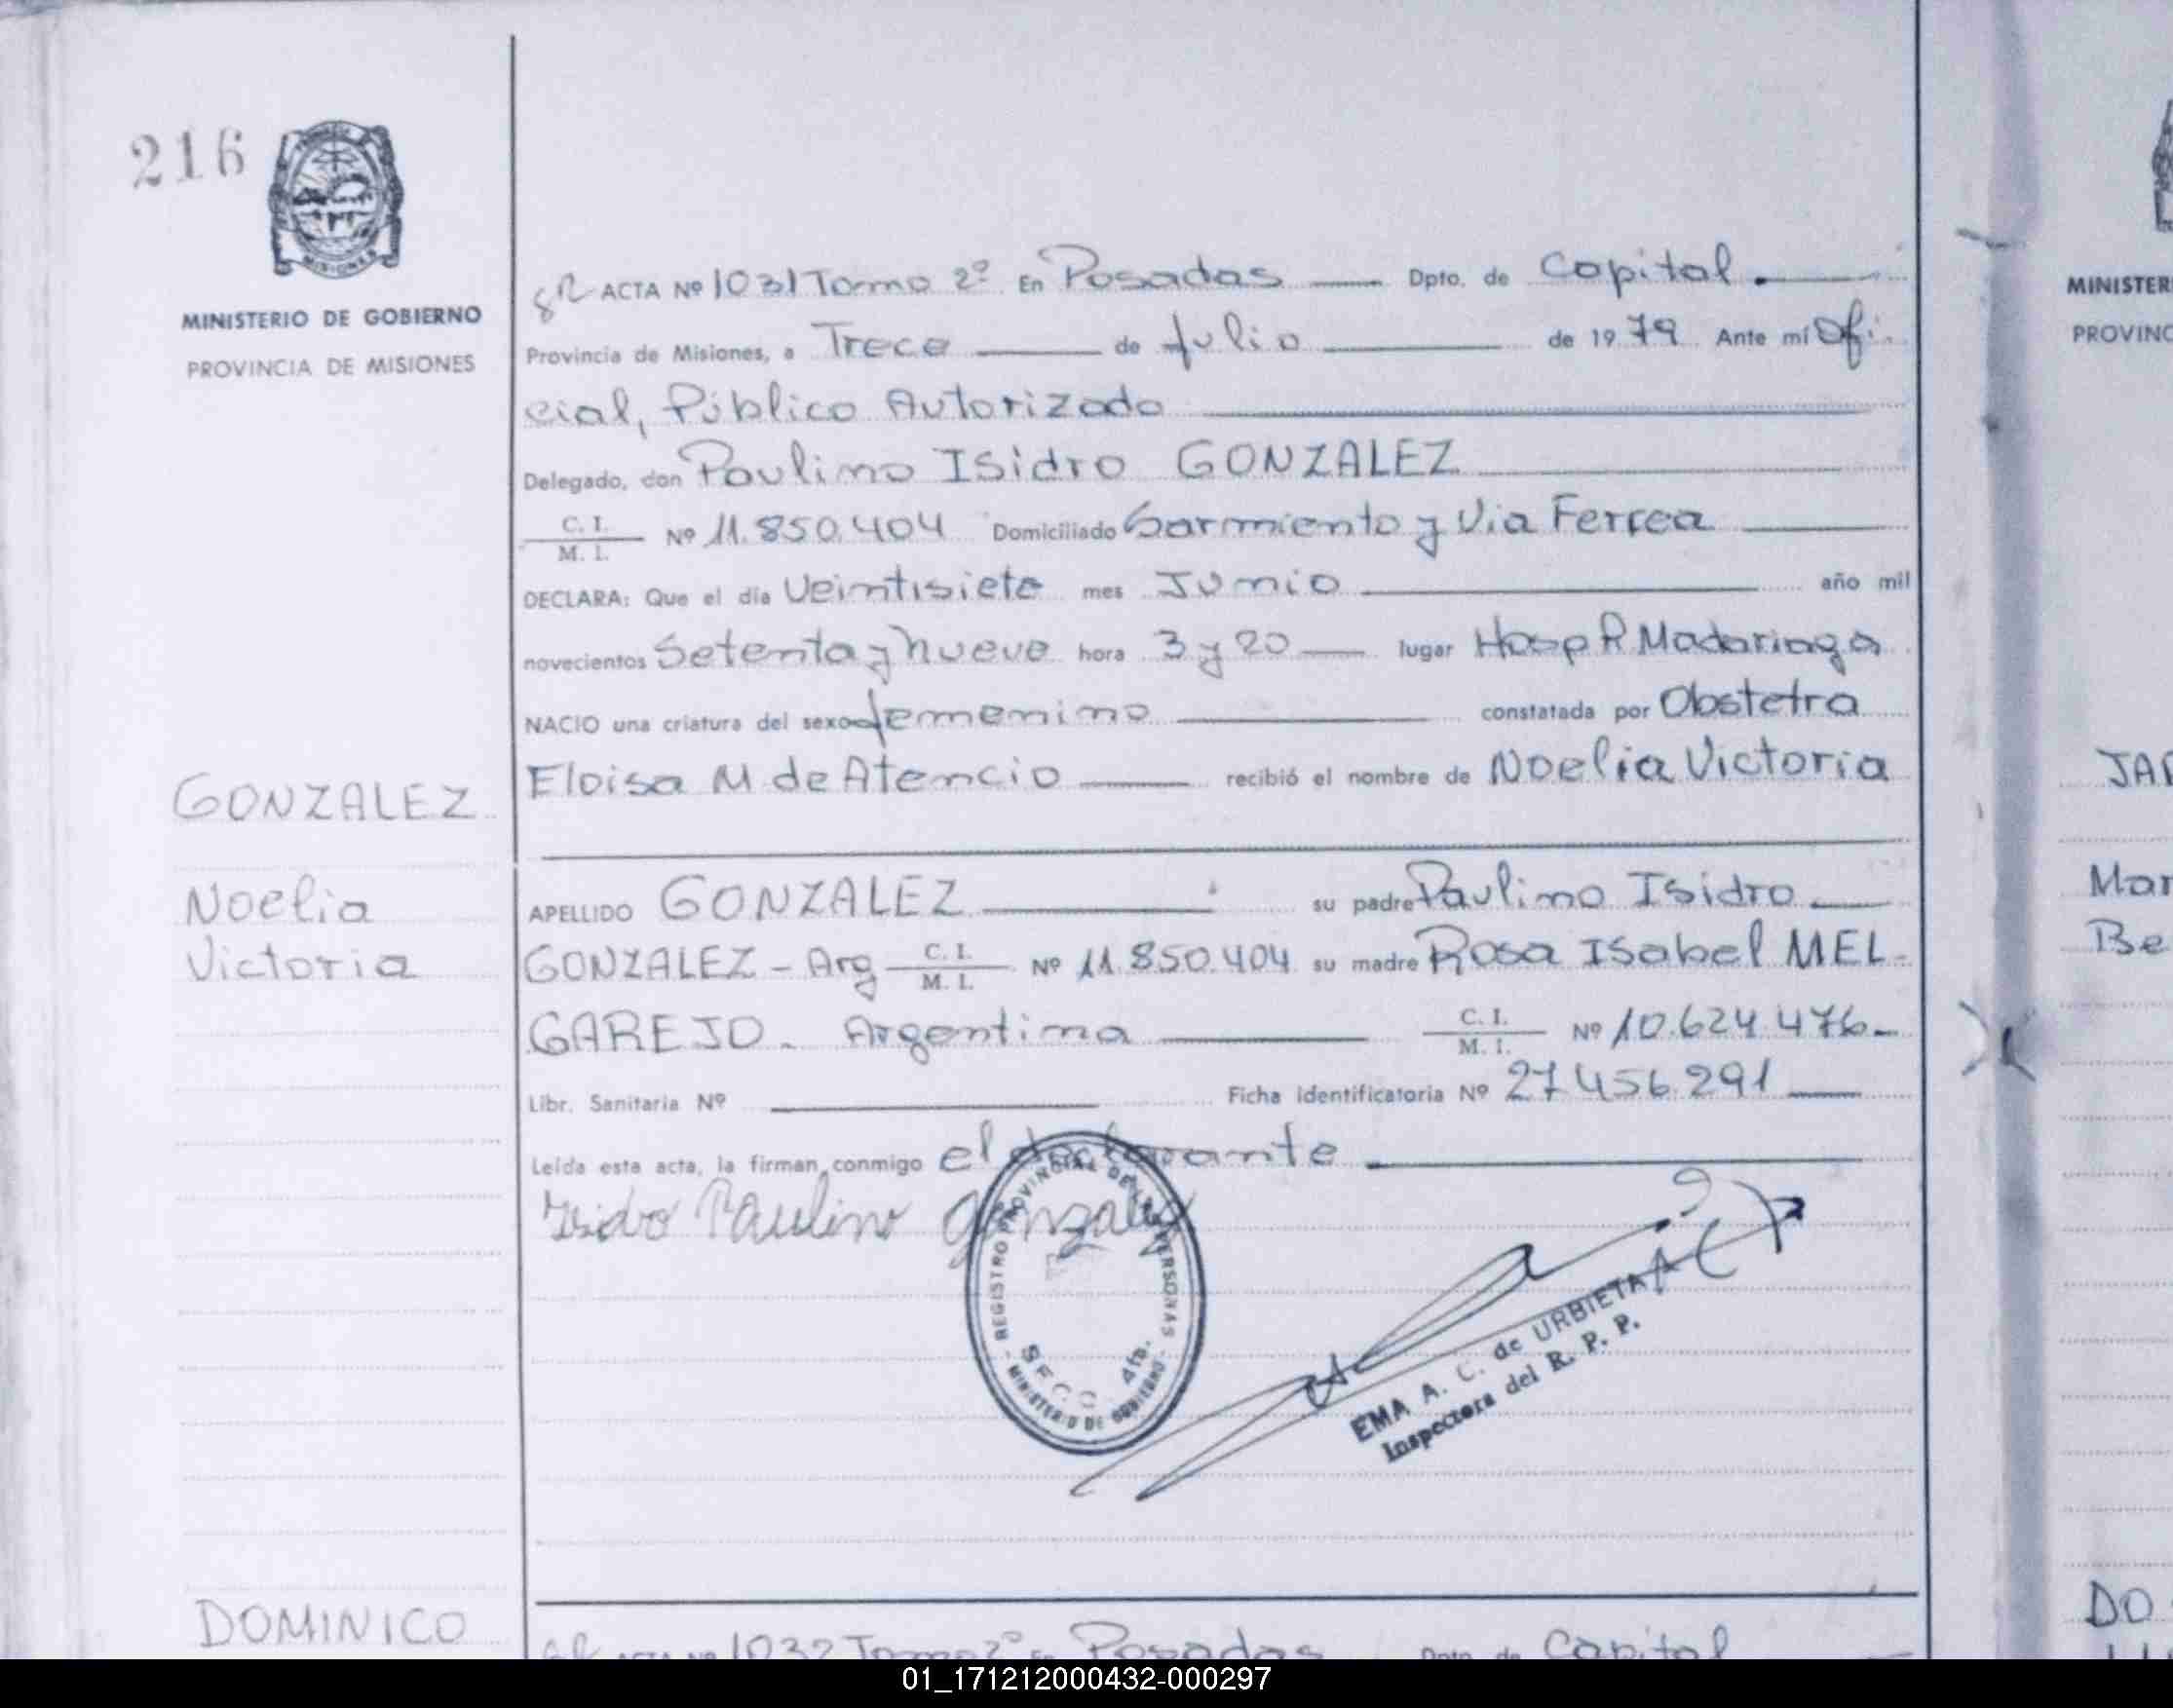 216
MISIONES
MINISTERIO DE GOBIERNO
PROVINCIA DE MISIONES
GONZALEZ
Noelia
Victoria
DOMINICO
ACTA Nº 1031 Tomo 2º En Posadas Dpto. de Capital.
Provincia de Misiones, a Trece de Julio de 1979 Ante mí Ofi-
cial, Público Autorizado
Delegado, don Paulino Isidro GONZALEZ
C. I.
M. I. Nº 11.850.404 Domiciliado Sarmiento y Via Ferrea
DECLARA: Que el día Veintisiete mes Junio año mil
novecientos Setenta y nueve hora 3 y 20 lugar Hosp R Madariaga
NACIO una criatura del sexo femenino constatada por Obstetra
Eloisa M de Atencio recibió el nombre de Noelia Victoria
APELLIDO GONZALEZ su padre Paulino Isidro
GONZALEZ - Arg C. I. M. I. Nº 11.850.404 su madre Rosa Isabel MEL-
GAREJO. Argentina C. I. M. I. Nº 10.624.476
Libr. Sanitaria Nº Ficha identificatoria Nº 27.456.291
Leída esta acta, la firman conmigo el declarante
Isidro Paulino Gonzalez
REGISTRO PROVINCIAL DE LAS PERSONAS
MINISTERIO DE GOBIERNO
EMA A. C. de URBIETA
Inspectora del R. P. P.
ACTA Nº 1032 Tomo 2º En Posadas Dpto. de Capital
MINISTER
PROVINC
JAR
Mar
Be
DO
01_171212000432-000297